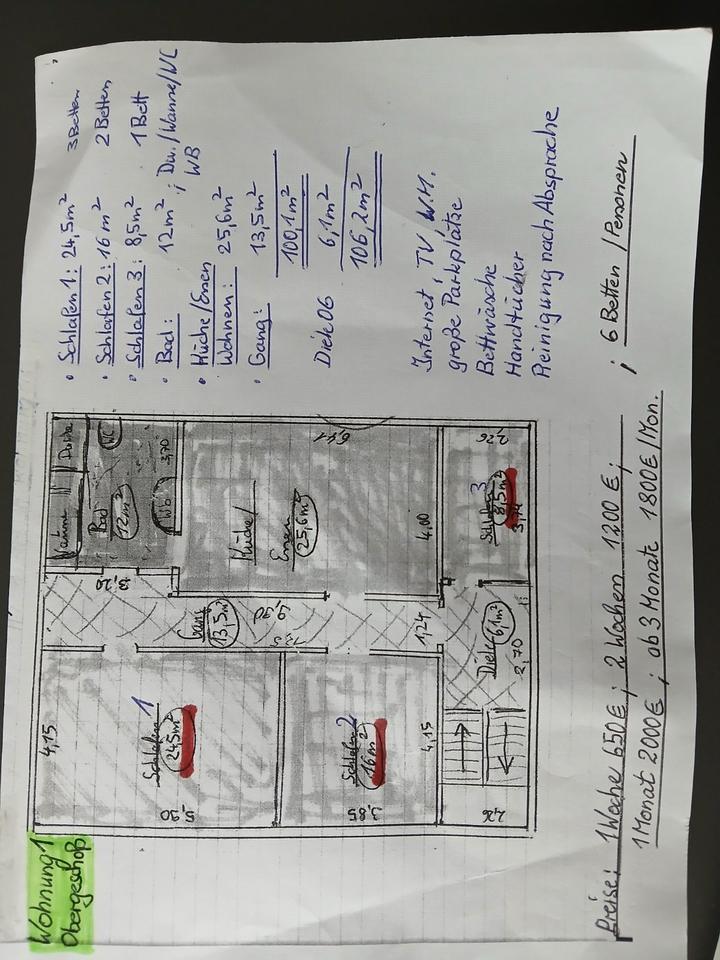 Wohnung 1
Obergeschoß
• Schlafen 1: 24,5m² 3 Betten
• Schlafen 2: 16m² 2 Betten
• Schlafen 3: 8,5m² 1 Bett
• Bad: 12m² ; Du./Wanne/WC
WB
• Küche/Essen
Wohnen: 25,6m²
• Gang: 13,5m²
100,1m²
Diele OG 6,1m²
106,2m²
Internet, TV, W.M.
große Parkplätze
Bettwäsche
Handtücher
Reinigung nach Absprache
Wanne
Dusche
Bad
12m²
WC
Wb
3,70
3,20
Küche/
Essen
25,6m²
6,41
4,00
2,26
Schlafen 3
8,5m²
3,74
Gang
13,5m²
1,24
Diele
6,1m²
2,70
4,15
Schlafen 1
24,5m²
5,90
Schlafen 2
16m²
4,15
3,85
2,26
Preise: 1 Woche 650€; 2 Wochen 1200€;
1 Monat 2000€ ; ab 3 Monate 1800€/Mon. ; 6 Betten/Personen